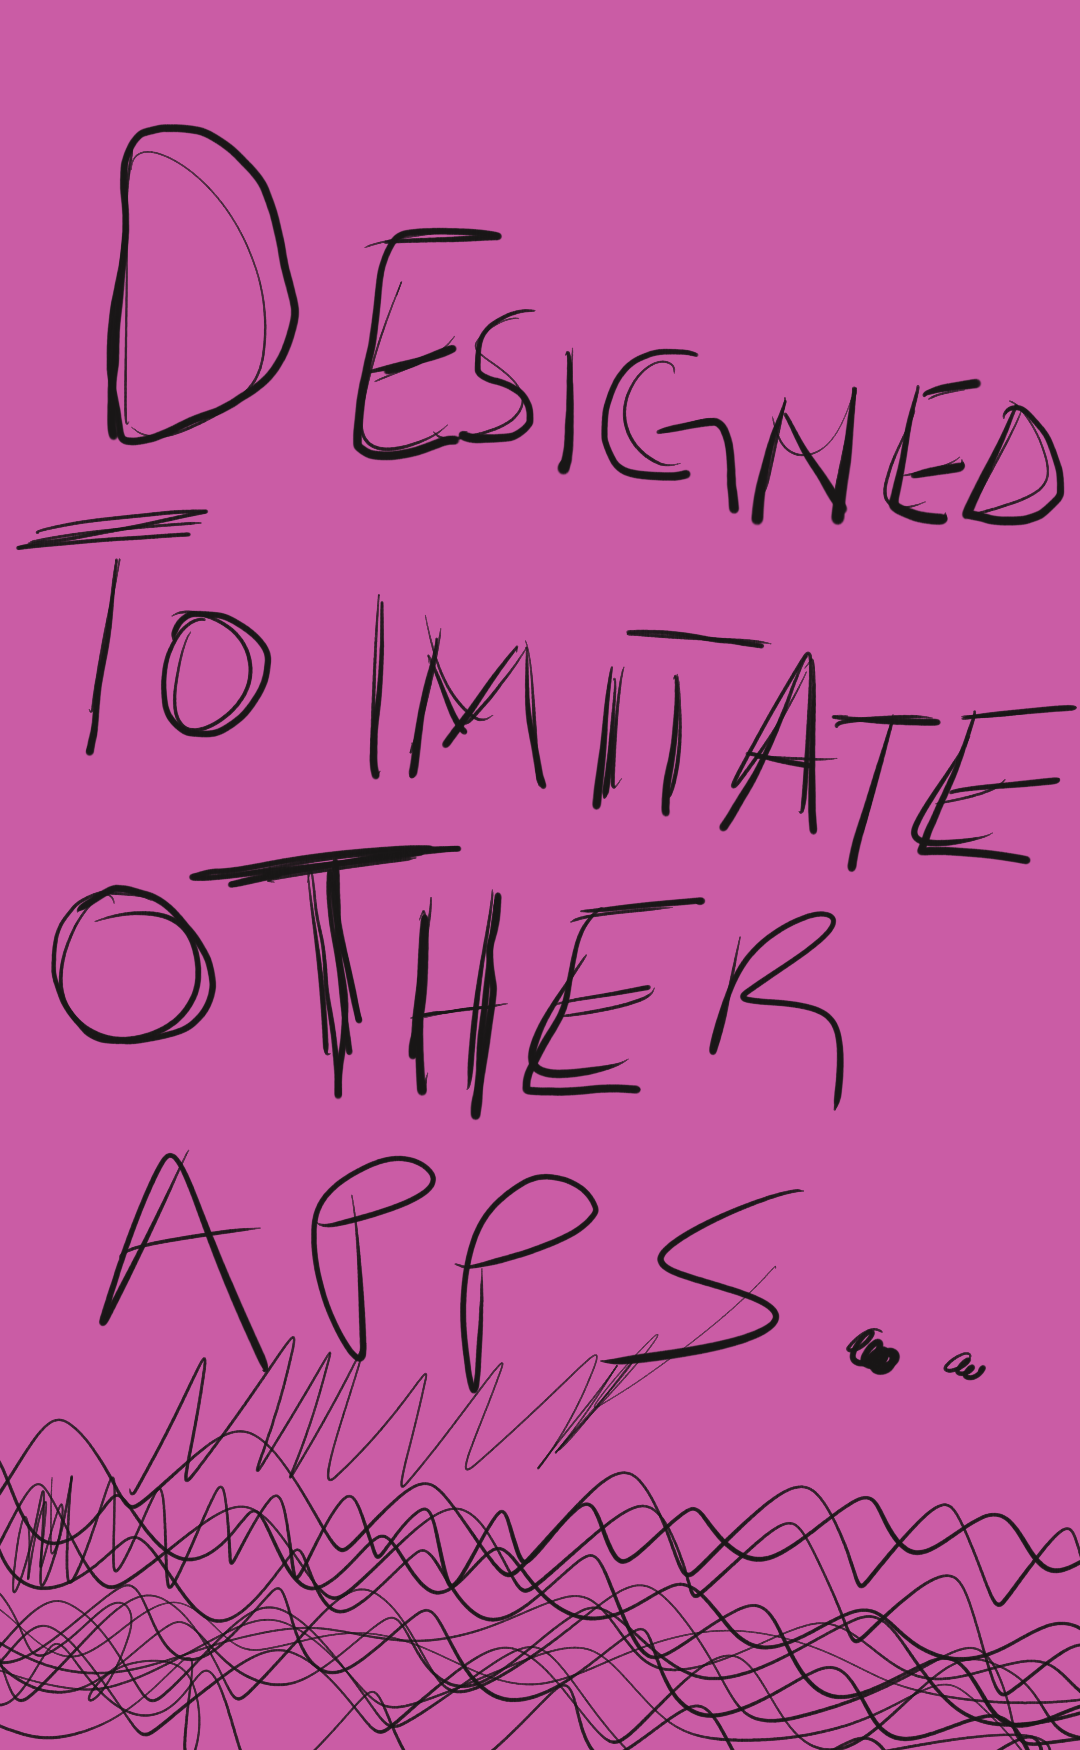 DESIGNED
TO IMITATE
OTHER
APPS..